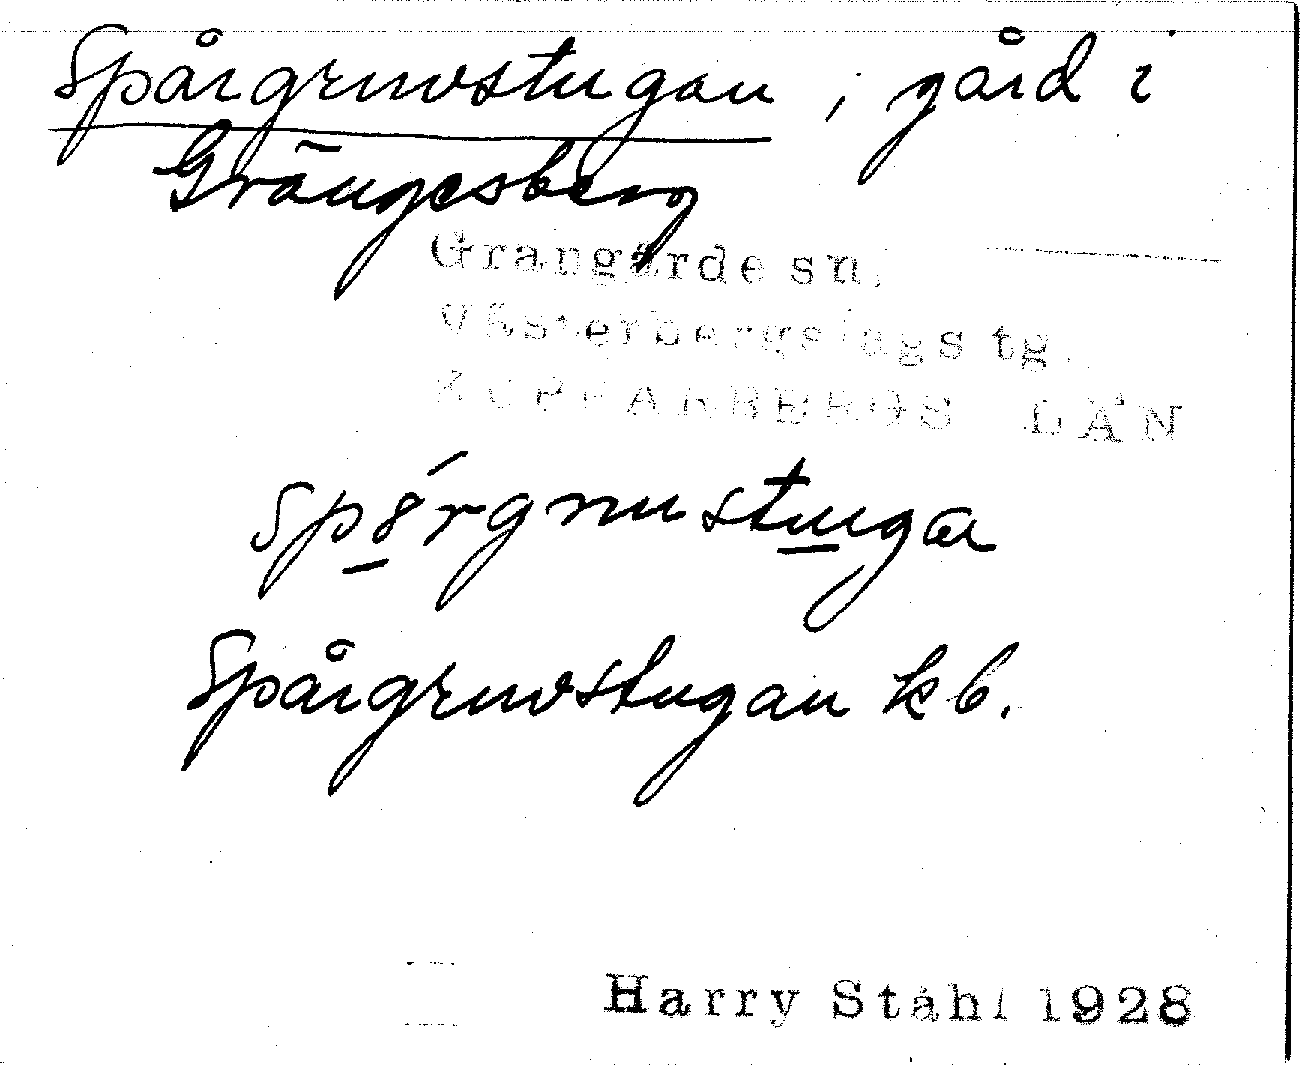 Spårgruvstugan, gård i
Grängesberg
Grangärde sn.
Västerbergslags tg.
KOPPARBERGS LÄN
spó̱rgrustu̱ga
Spårgruvstugan kb.
Harry Ståhl 1928